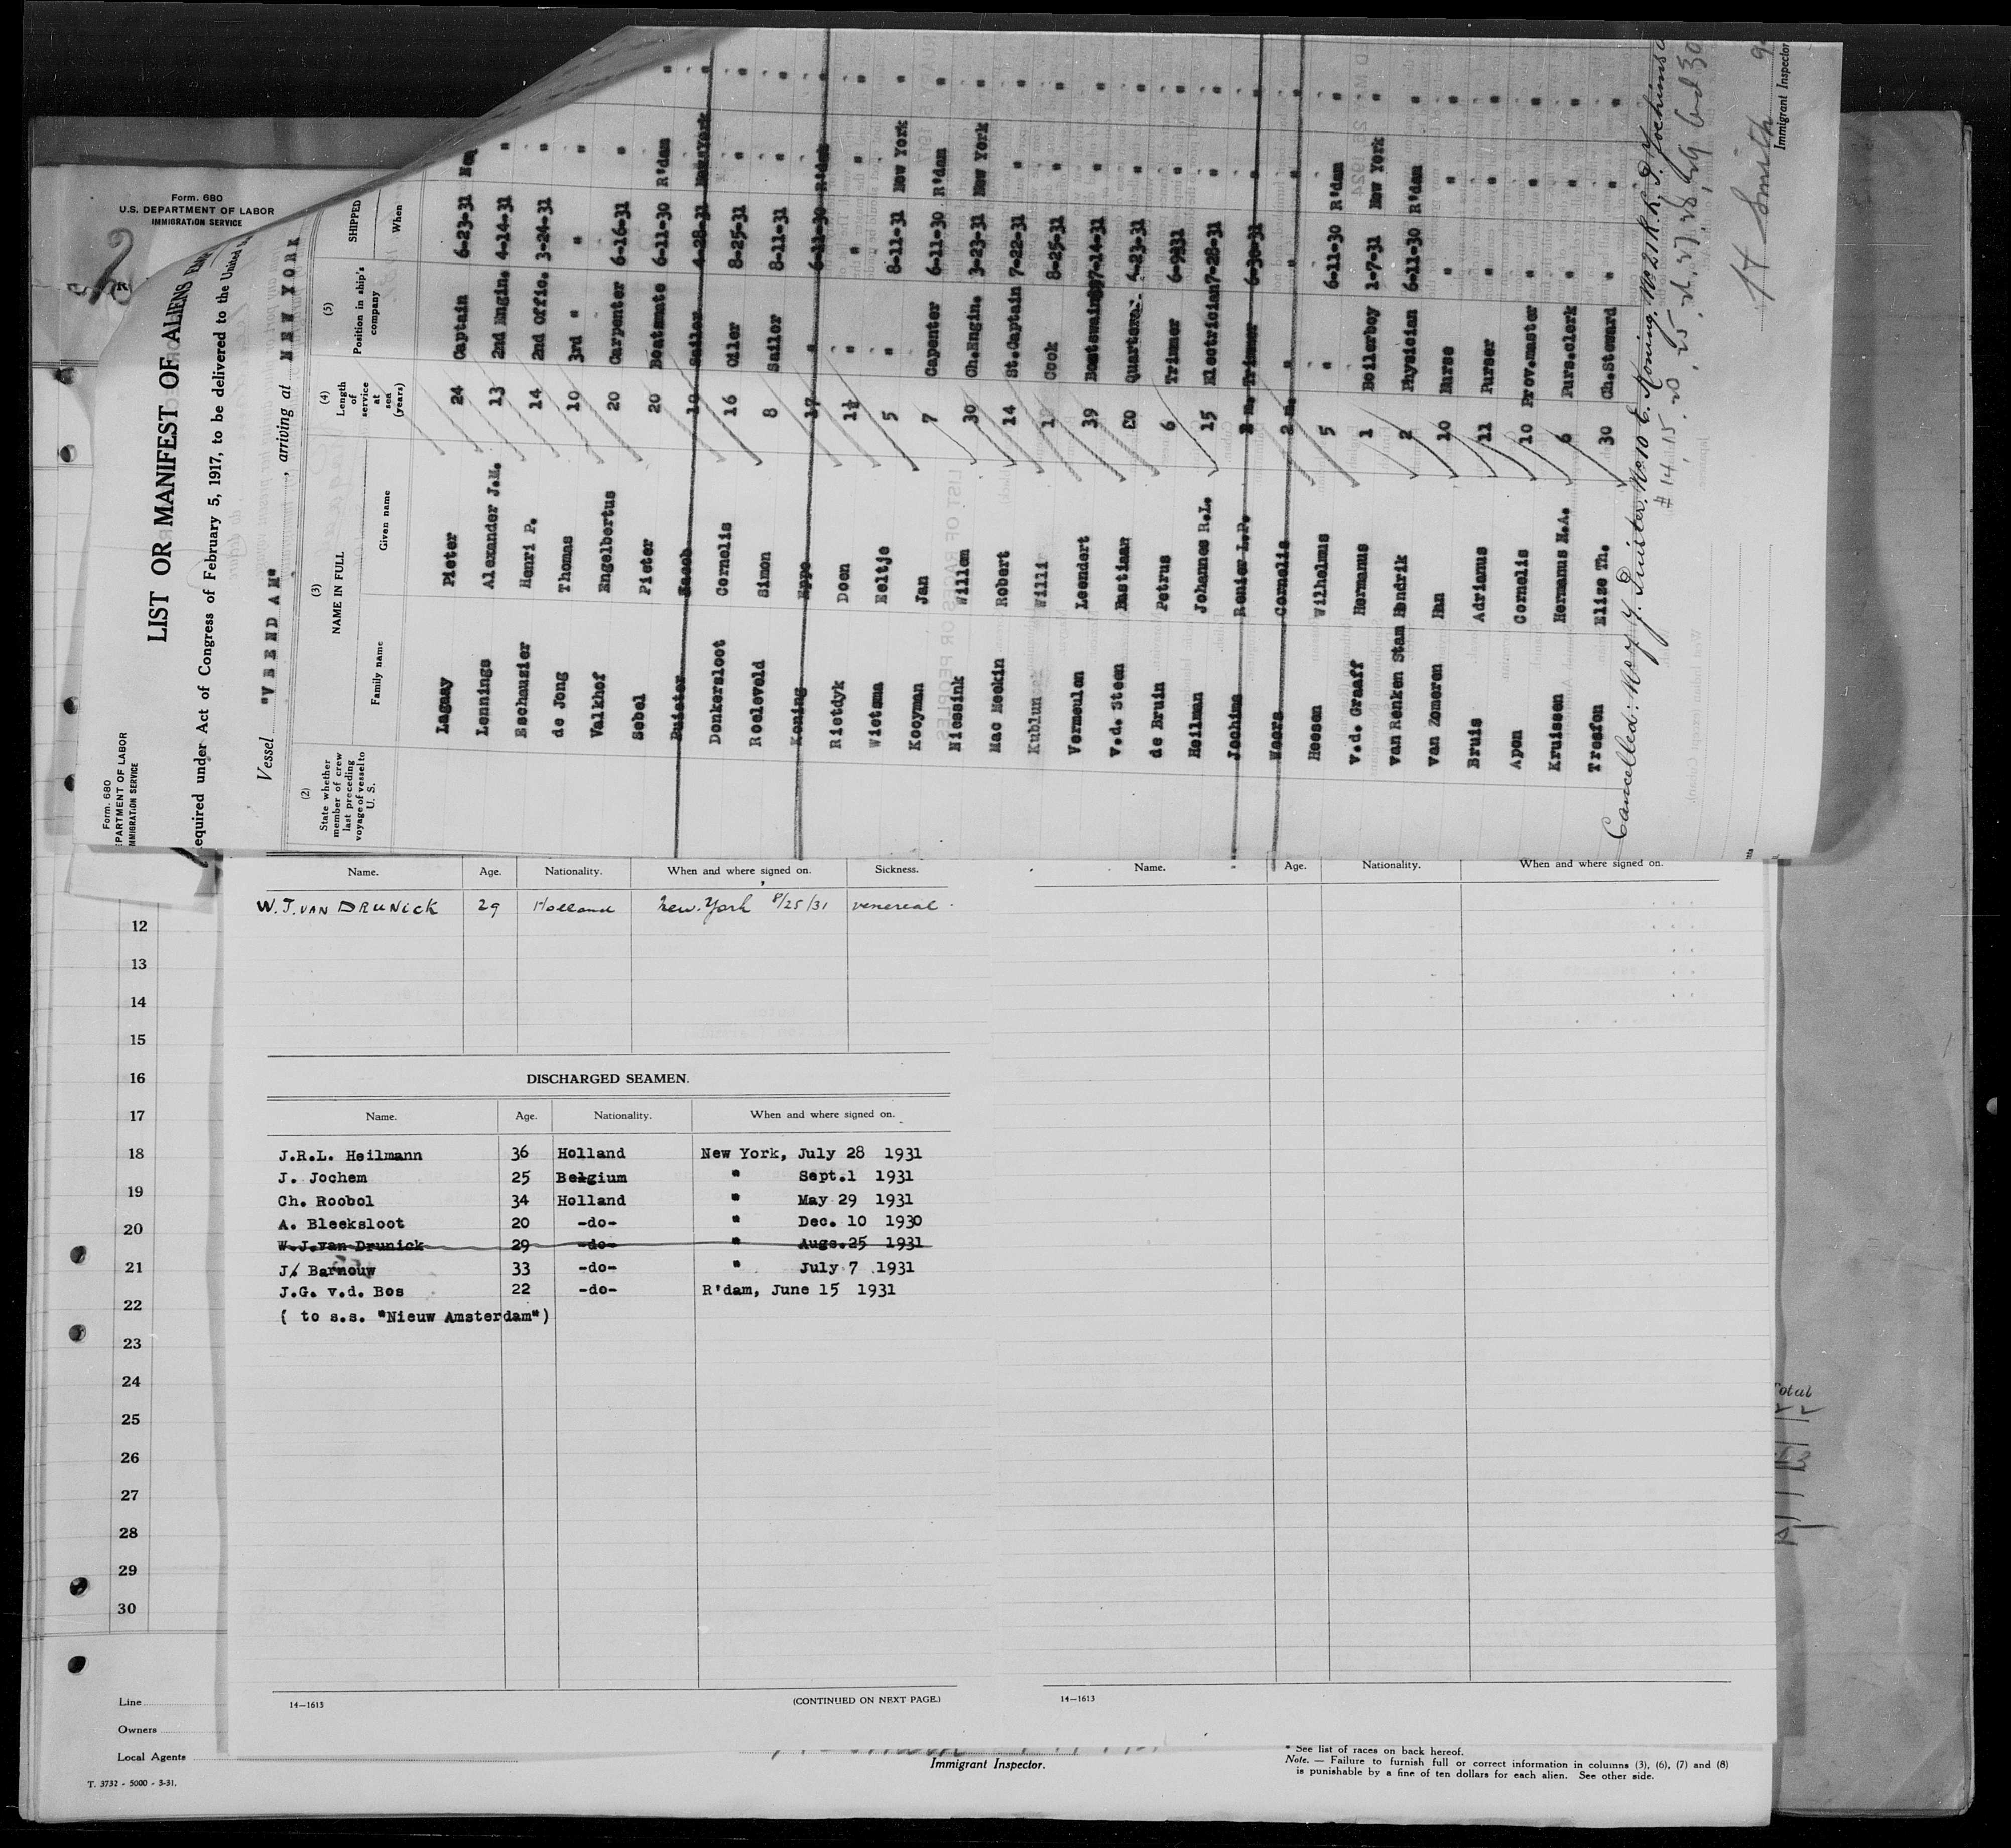 Form. 680
U.S. DEPARTMENT OF LABOR
IMMIGRATION SERVICE
Form. 680
PARTMENT OF LABOR
MMIGRATION SERVICE
LIST OR MANIFEST OF ALIENS
equired under Act of Congress of February 5, 1917, to be delivered to the United
Vessel "VEENDAM" , arriving at NEW YORK
(2) (3) (4) (5)
State whether member of crew last preceding voyage of vessel to U. S.
NAME IN FULL
Family name Given name
Length of service at sea (years)
Position in ship's company
SHIPPED
When
Lagaay Pieter 24 Captain 6-23-31
Lennings Alexander J.M. 13 2nd Engin. 4-14-31 "
Eschauzier Henri P. 14 2nd Offic. 3-24-31 "
de Jong Thomas 10 3rd " " "
Valkhof Engelbertus 20 Carpenter 6-16-31 "
Sebel Pieter 20 Boatsmate 6-11-30 R'dam "
Duister Jacob 10 Sailor 4-28-31 New York "
Donkersloot Cornelis 16 Oiler 8-25-31 " "
Roeleveld Simon 8 Sailor 8-11-31 " "
Koning Eppo 17 " 6-11-30 R'dam "
Rietdyk Doen 1½ " " " "
Wietsma Eeltje 5 " 8-11-31 New York "
Kooyman Jan 7 Capenter 6-11-30 R'dam "
Niessink Willem 30 Ch.Engin. 3-23-31 New York "
Mac Meekin Robert 14 St.Captain 7-22-31 " "
Kublun Willi Cook 8-25-31 " "
Vermeulen Leendert 39 Boatswain 7-14-31 " "
v.d. Steen Bastiaan 20 Quarterm. 6-23-31 " "
de Bruin Petrus 6 Trimmer 6-9-31 " "
Heilman Johannes R.L. 15 Electrician 7-28-31 " "
Jochims Renier L.P. 2 m. Trimmer 6-30-31 " "
Weers Cornelis 2 m. " " " "
Heesen Wilhelmus 5 " 6-11-30 R'dam "
v.d. Graaff Hermanus 1 Boilerboy 1-7-31 New York "
van Renken Stam Hendrik 2 Physician 6-11-30 R'dam "
van Zomeren Han 10 Nurse " " "
Bruis Adrianus 11 Purser " " "
Apon Cornelis 10 Prov.master " " "
Kruissen Hermanus M.A. 6 Purs.clerk " " "
Treefen Elise Th. 30 Ch.Steward " " "
Cancelled: No 7 Y. Duister, No 10 E. Koning, No 21 R.L.P. Jochims
# 14, 15, 20, 25, 26, 27, 28, 29 and 30
H Smith
Immigrant Inspector
Name. Age. Nationality. When and where signed on. Sickness.
W.J. VAN DRUNICK 29 Holland New-York 8/25/31 venereal
Name. Age. Nationality. When and where signed on.
DISCHARGED SEAMEN.
Name. Age. Nationality. When and where signed on.
J.R.L. Heilmann 36 Holland New York, July 28 1931
J. Jochem 25 Belgium " Sept.1 1931
Ch. Roobol 34 Holland " May 29 1931
A. Bleeksloot 20 -do- " Dec. 10 1930
W.J.van Drunick 29 -do- " Augs.25 1931
J. Barnouw 33 -do- " July 7 1931
J.G. v.d. Bos 22 -do- R'dam, June 15 1931
( to s.s. "Nieuw Amsterdam")
12
13
14
15
16
17
18
19
20
21
22
23
24
25
26
27
28
29
30
Total
14—1613 (CONTINUED ON NEXT PAGE.)
14—1613
Line
Owners
Local Agents
T. 3732 - 5000 - 3-31.
Immigrant Inspector.
* See list of races on back hereof.
Note. — Failure to furnish full or correct information in columns (3), (6), (7) and (8)
is punishable by a fine of ten dollars for each alien. See other side.